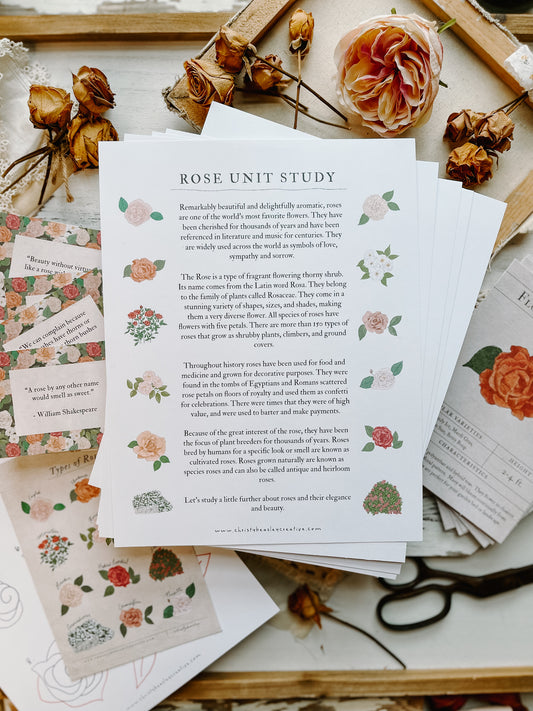 ROSE UNIT STUDY
Remarkably beautiful and delightfully aromatic, roses
are one of the world's most favorite flowers. They have
been cherished for thousands of years and have been
referenced in literature and music for centuries. They
are widely used across the world as symbols of love,
sympathy and sorrow.
The Rose is a type of fragrant flowering thorny shrub.
Its name comes from the Latin word Rosa. They belong
to the family of plants called Rosaceae. They come in a
stunning variety of shapes, sizes, and shades, making
them a very diverse flower. All species of roses have
flowers with five petals. There are more than 150 types of
roses that grow as shrubby plants, climbers, and ground
covers.
Throughout history roses have been used for food and
medicine and grown for decorative purposes. They were
found in the tombs of Egyptians and Romans scattered
rose petals on floors of royalty and used them as confetti
for celebrations. There were times that they were of high
value, and were used to barter and make payments.
Because of the great interest of the rose, they have been
the focus of plant breeders for thousands of years. Roses
bred by humans for a specific look or smell are known as
cultivated roses. Roses grown naturally are known as
species roses and can also be called antique and heirloom
roses.
Let's study a little further about roses and their elegance
and beauty.
www.christybeasleycreative.com
"Beauty without virtue
like a rose
"We can complain because
have thorns or
thorn bushes
"A rose by any other name
would smell as sweet."
- William Shakespeare
Types of
HEIGHT
4 ft
CHARACTERISTICS
VARIETIES